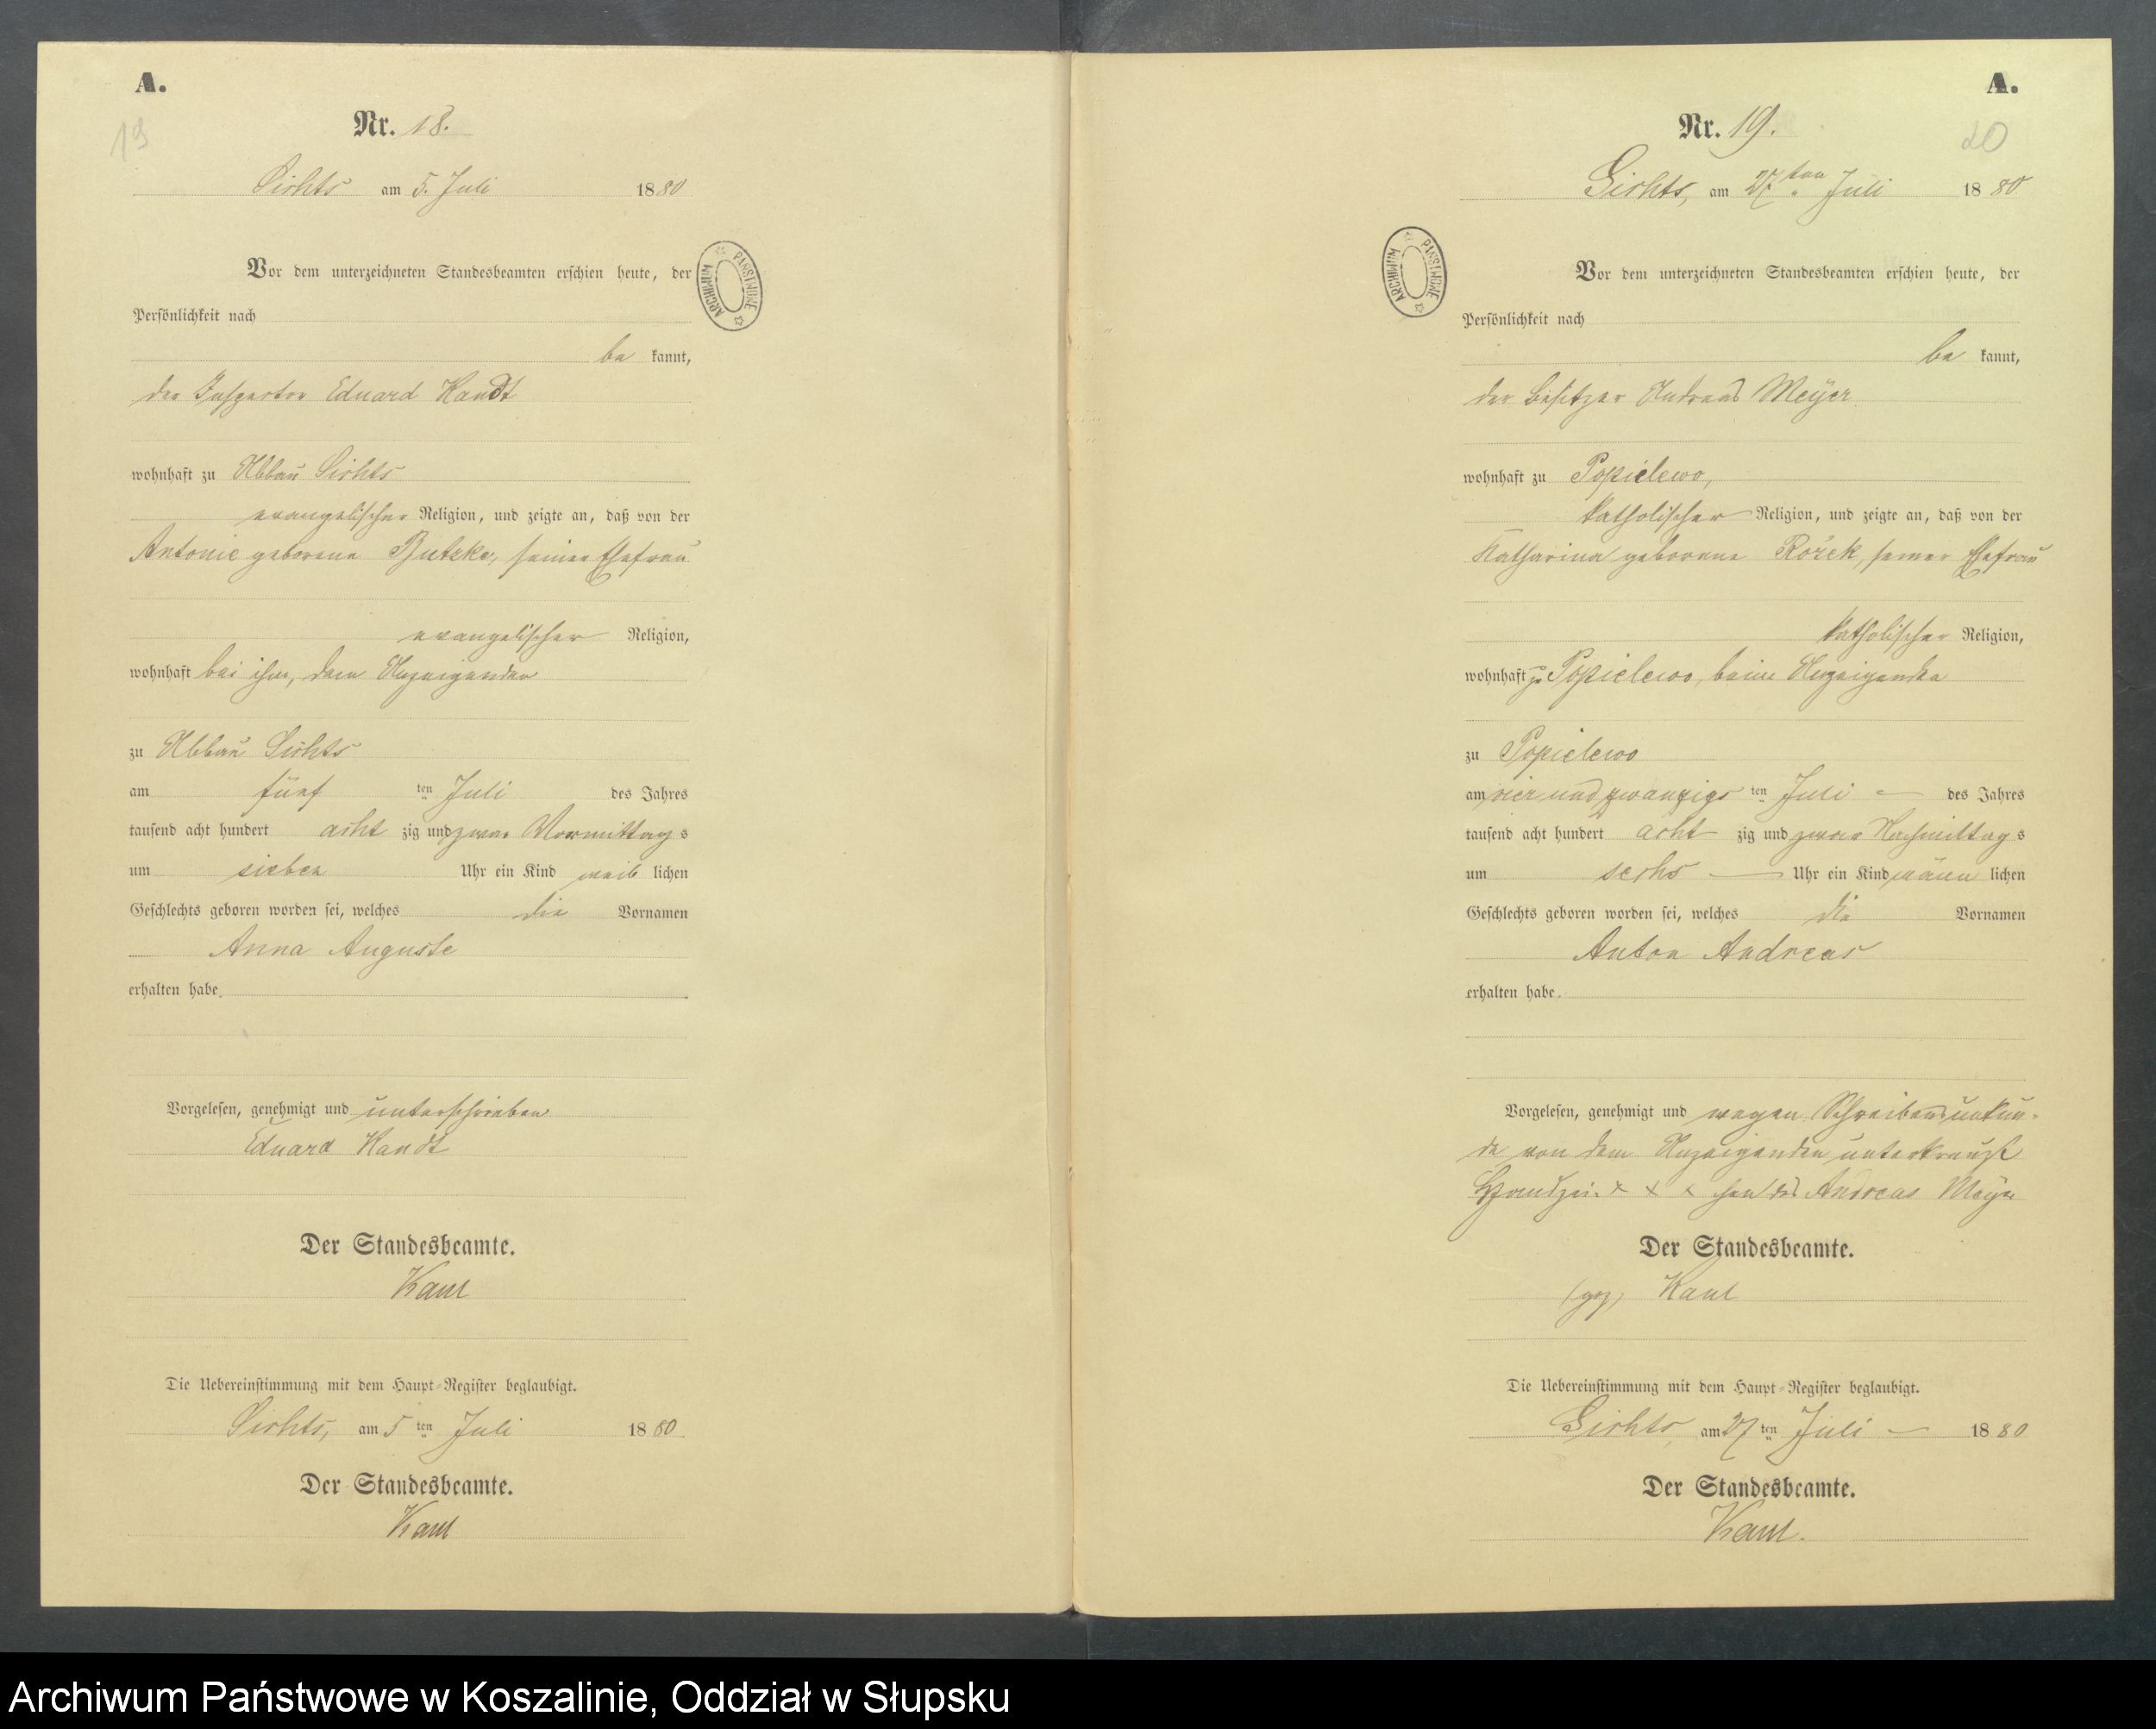 A.
19
Nr. 18.
am 5. Juli 1880
Vor dem unterzeichneten Standesbeamten erschien heute, der
Persönlichkeit nach
be kannt,
der Inspector Eduard Kandt
wohnhaft zu Abbau
evangelischer Religion, und zeigte an, daß von der
Antonie geborene Butzke, seiner Ehefrau
evangelischer Religion,
wohnhaft bei ihm, dem Anzeigenden
zu Abbau
am fünf ten Juli des Jahres
tausend acht hundert acht zig und zwar Vormittag s
um sieben Uhr ein Kind weib lichen
Geschlechts geboren worden sei, welches die Vornamen
Anna Auguste
erhalten habe.
Vorgelesen, genehmigt und unterschrieben
Eduard Kandt
Der Standesbeamte.
Die Uebereinstimmung mit dem Haupt-Register beglaubigt.
am 5 ten Juli 1880
Der Standesbeamte.
ARCHIWUM PAŃSTWOWE
A.
20
Nr. 19.
am 27ten Juli 1880
ARCHIWUM PAŃSTWOWE
Vor dem unterzeichneten Standesbeamten erschien heute, der
Persönlichkeit nach
be kannt,
der Besitzer Andreas Meyer
wohnhaft zu Popielewo,
katholischer Religion, und zeigte an, daß von der
Katharina geborene Rożek, seiner Ehefrau
katholischer Religion,
wohnhaft zu Popielewo, beim Anzeigenden
zu Popielewo
am vier und zwanzigs ten Juli des Jahres
tausend acht hundert acht zig und zwar Nachmittag s
um sechs Uhr ein Kind männ lichen
Geschlechts geboren worden sei, welches die Vornamen
Anton Andreas
erhalten habe.
Vorgelesen, genehmigt und wegen Schreibensunkun-
de von dem Anzeigenden unterkreuzt
Handzei- x x x chen des Andreas Meyer
Der Standesbeamte.
(gez)
Die Uebereinstimmung mit dem Haupt-Register beglaubigt.
am 27 ten Juli 1880
Der Standesbeamte.
Archiwum Państwowe w Koszalinie, Oddział w Słupsku